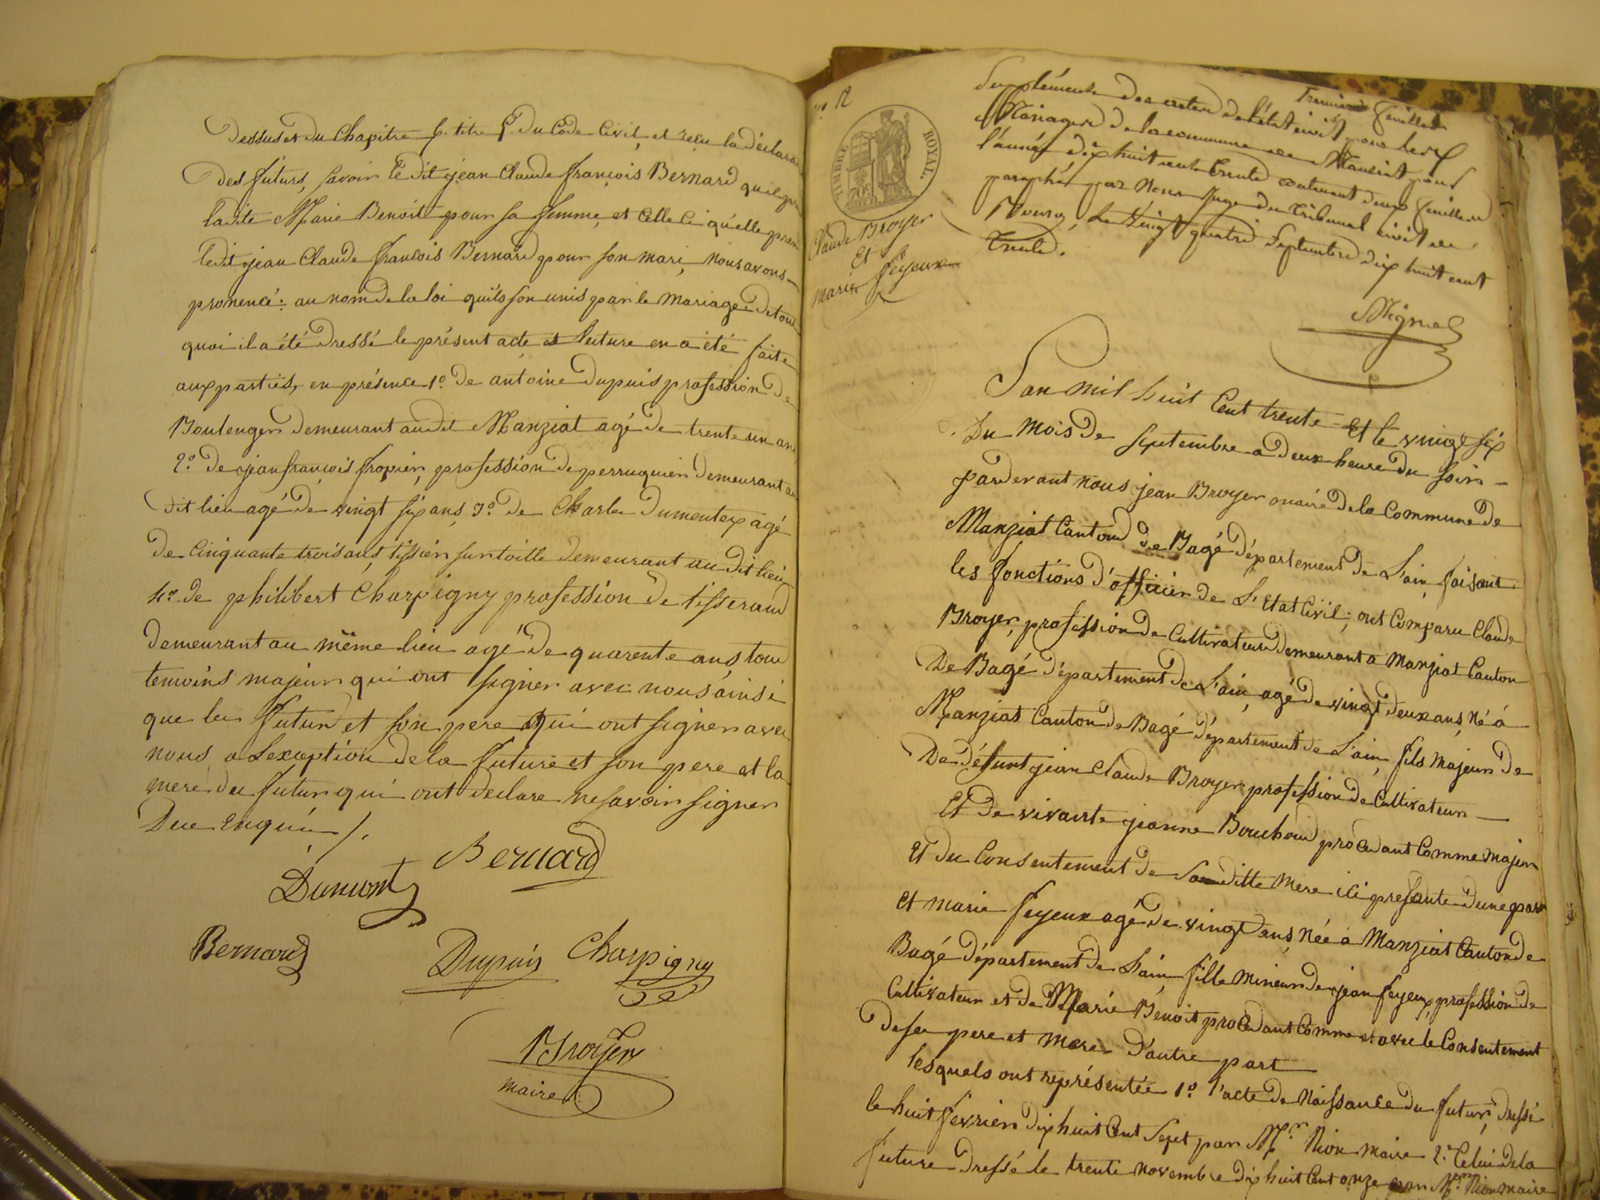 dessus et du Chapitre 6 titre 5 du Code Civil, et reçu la déclara
des futurs, savoir Ledit jean Claude françois Bernard qu'il
ladite Marie Benoit pour sa femme, et Celle Ci qu'elle pren
ledit jean Claude francois Bernard pour son mari, nous avons
prononcé : au nom de la loi quils son unis par le Mariage De tou
quoi il a été dressé le présent acte et Lecture en a été faite
aux parties, en présence 1º de antoine Dupuis profession De
Boulenger demeurant audit Manziat agé de trente un ans
2º de jean françois profession de perruquier demeurant au
dit lieu agé de vingt six ans 3º de Charle Dumontex agé
de Cinquante trois ans, tissier sur toille demeurant au dit lieu
4º de philibert Charpigny profession de tisserand
demeurant au même lieu agé de quarente ans, tous
temoins majeur qui ont signer avec nous ainsi
que le futur et son pere qui ont signer avec
nous a Lexception de la future et son pere et la
mere du futur qui ont déclaré ne savoir signer
De ce Enquis /.
Bernard
Dumont
Bernard
Dupuis Charpigny
Broyer
maire
nº 12
TIMBRE ROYAL
Claude Broyer
Et
marie feyeux
Premier feuillet
Supplément des actes de l'état civil pour les
Mariages de la commune de Manziat pour
l'année dix huit cent trente contenant deux feuillets
paraphés par Nous Juge du Tribunal civil de
Bourg, Le vingt quatre Septembre dix huit cent
trente.
L'an mil huit Cent trente Et le vingt six
Du Mois De septembre a deux heure du soir
pardevant nous jean Broyer maire de la Commune de
Manziat Canton de Bagé département de L'ain faisant
les fonctions d'officier de L'Etat Civil ; ont Comparu Claude
Broyer, profession de Cultivateur demeurant a Manziat Canton
De Bagé département de L'ain, agé de vingt deux ans, Né á
Manziat Canton de Bagé département de L'ain, fils Majeur de
De défunt jean Claude Broyer profession de Cultivateur
Et De vivante jeanne Bouchoud procedant Comme Majeur
Et du Consentement de Sa ditte Mere ici presente d'une part
Et marie feyeux agé de vingt ans, Née a Manziat Canton de
Bagé département de L'ain, fille Mineur de jean feyeux, profession de
Cultivateur et de Marie Benoit procedant Comme et avec le Consentement
de ses pere et Mere D'autre part
lesquels ont représentée 1º l'acte de Naissance du futur, dressé
le huit fevrier dix huit Cent Sept par Mr. Nion Maire 2º Celui de la
future dressé le trente novembre dix huit Cent onze par Mr Nion maire